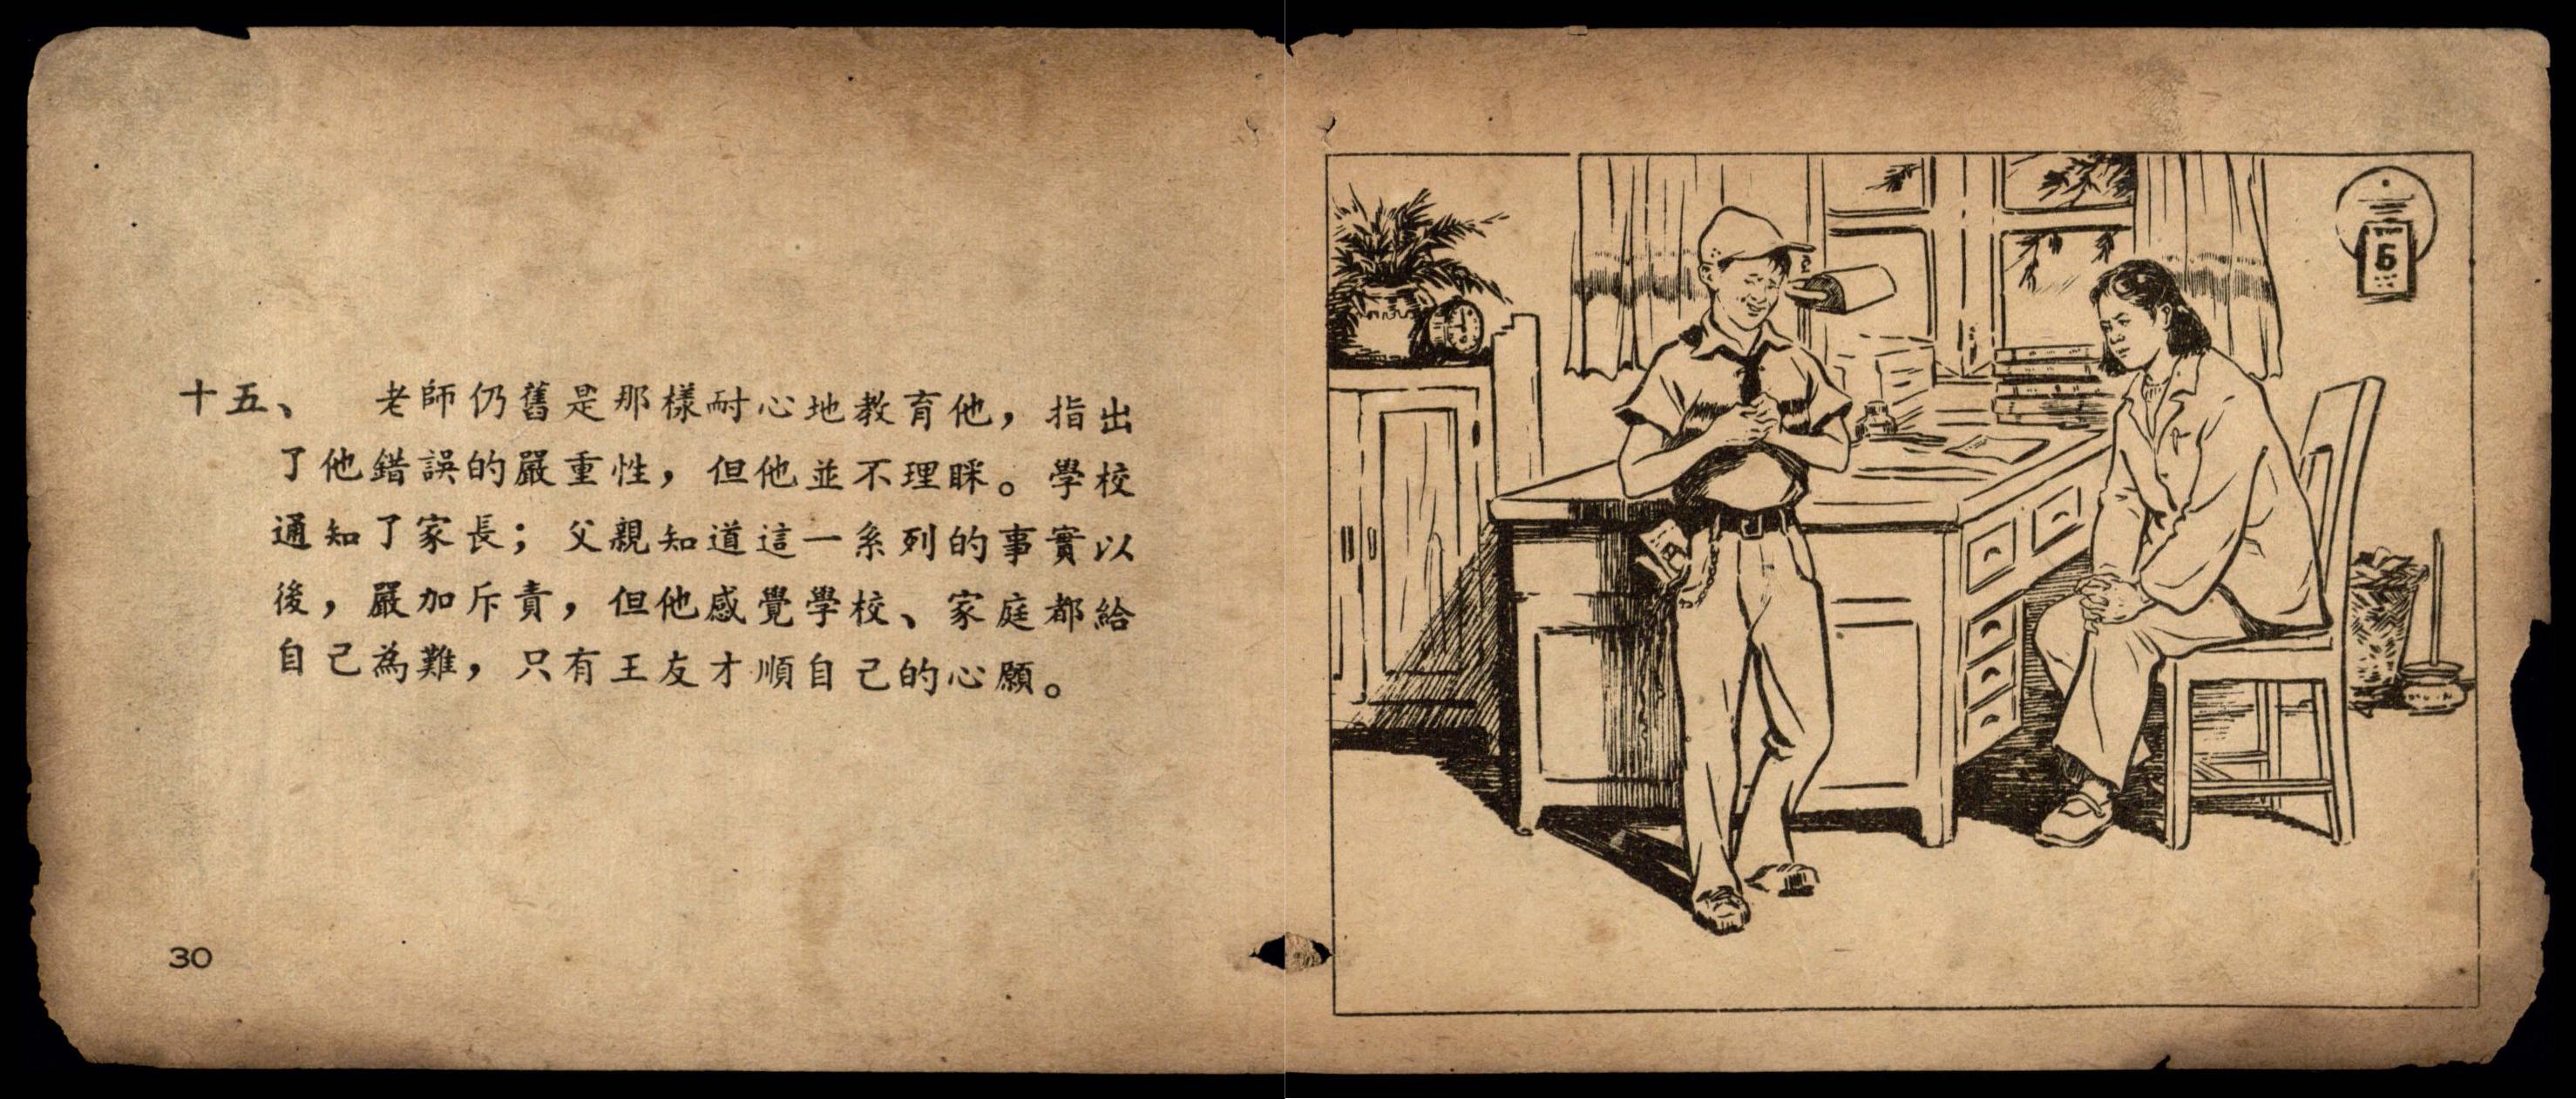 十五、　老師仍舊是那樣耐心地教育他，指出
了他錯誤的嚴重性，但他並不理睬。學校
通知了家長；父親知道這一系列的事實以
後，嚴加斥責，但他感覺學校、家庭都給
自己為難，只有王友才順自己的心願。
30
5